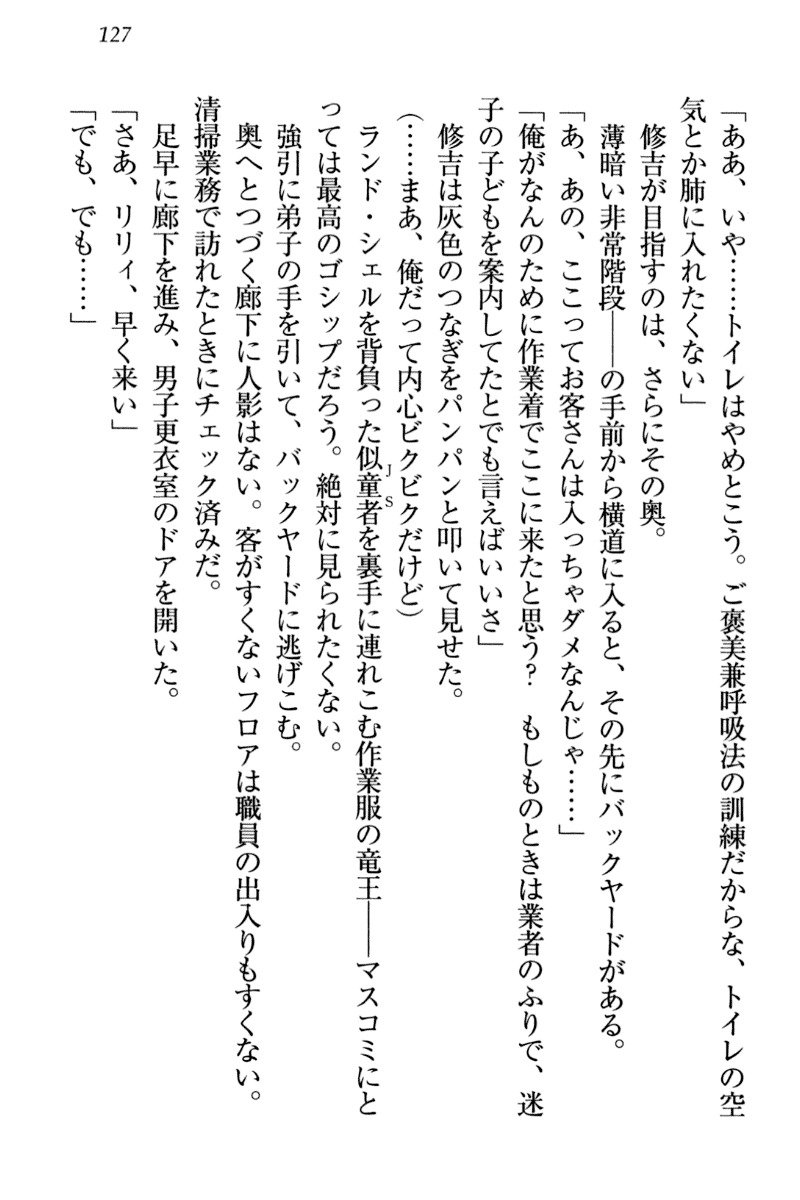 127
「ああ、いや……トイレはやめとこう。ご褒美兼呼吸法の訓練だからな、トイレの空
気とか肺に入れたくない」
修吉が目指すのは、さらにその奥。
薄暗い非常階段――の手前から横道に入ると、その先にバックヤードがある。
「あ、あの、ここってお客さんは入っちゃダメなんじゃ……」
「俺がなんのために作業着でここに来たと思う？　もしものときは業者のふりで、迷
子の子どもを案内してたとでも言えばいいさ」
修吉は灰色のつなぎをパンパンと叩いて見せた。
（……まあ、俺だって内心ビクビクだけど）
ランド・シェルを背負った似童者を裏手に連れこむ作業服の竜王――マスコミにと
JS
っては最高のゴシップだろう。絶対に見られたくない。
強引に弟子の手を引いて、バックヤードに逃げこむ。
奥へとつづく廊下に人影はない。客がすくないフロアは職員の出入りもすくない。
清掃業務で訪れたときにチェック済みだ。
足早に廊下を進み、男子更衣室のドアを開いた。
「さあ、リリィ、早く来い」
「でも、でも……」